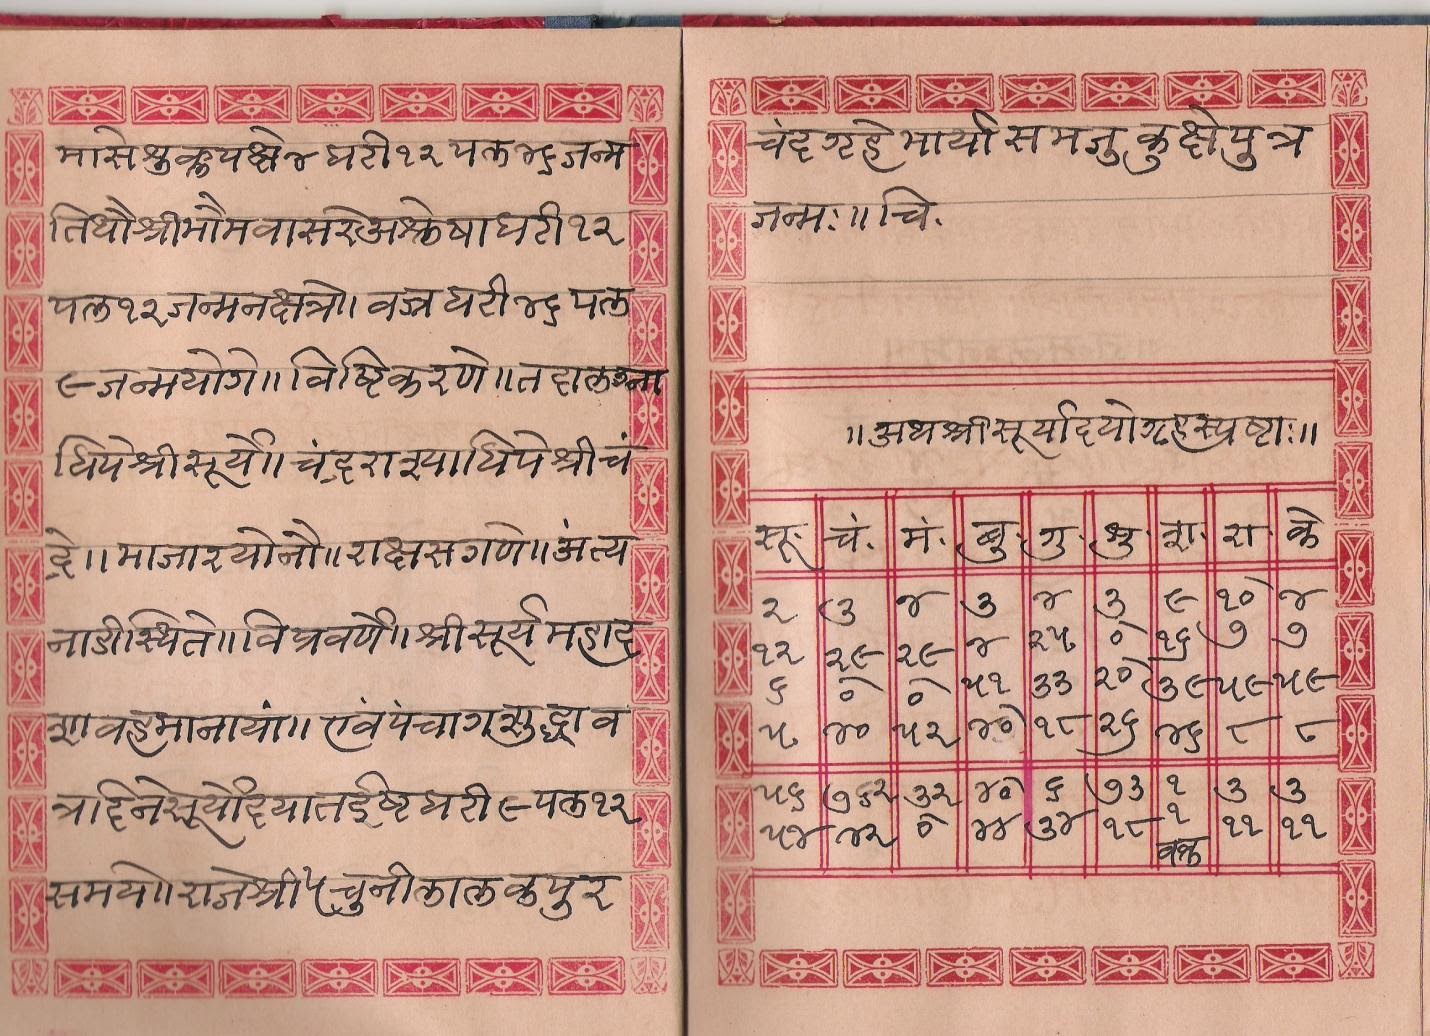 मासे शुक्लपक्षे ४ घटी १२ पल ४६ जन्म
तिथौ श्री भौमवासरे अश्लेषा घटी १२
पल १२ जन्म नक्षत्रे। वज्र घटी ४६ पल
९ जन्मयोगे॥ विष्टिकरणे॥ तत्काल
धिपे श्री सूर्ये॥ चंद्रराश्याधिपे श्री चं
द्रे॥ मार्जारयोनौ॥ राक्षसगणे॥ अंत्य
नाडीस्थिते॥ विप्रवर्णे॥ श्री सूर्य महाद
शा वर्द्धमानायां॥ एवं पंचाग शुद्धाव
त्रादिने सूर्योदयात ईष्ट घटी ९ पल १२
समये॥ राजेश्री ५ चुनीलाल कपुर
चंद्रगृहे भार्या समजु कुक्षे पुत्र
जन्मः॥ चि.
॥ अथ श्री सूर्यादयो ग्रह स्पष्टाः॥
सू. चं. मं. बु. गु. शु. श. रा. के
२ ३ ४ ३ ४ ३ ९ १० ४
१२ २९ २९ ४ २५ ० १६ ७ ७
६ ० ० ५१ ३३ २० ३९ ५९ ५९
५ ४० ५२ ४० १८ २६ ४६ ८ ८
५६ ७६२ ३२ ४० ६ ७३ १ ३ ३
५४ ४२ ० ४४ ३४ १८ १ ११ ११
वक्र